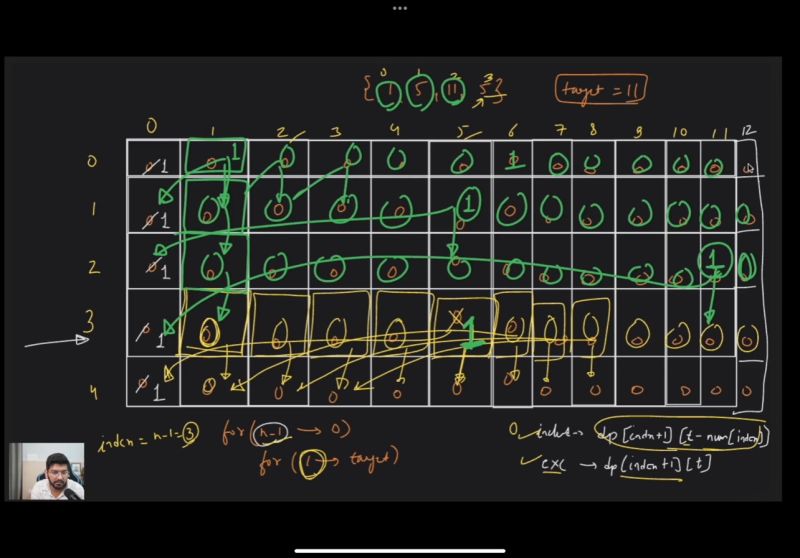 0 1 2 3
{1, 5, 11, 5}
target = 11
0 1 2 3 4 5 6 7 8 9 10 11 12
0 0 1 0 1 0 0 0 0 1 0 0 0 0 0 0
1 0 1 0 0 0 0 1 0 0 0 0 0 0 0 0
2 0 1 0 0 0 0 0 0 0 0 0 0 1 0
3 0 1 0 0 0 0 1 0 0 0 0 0 0 0
4 0 1 0 0 0 0 0 0 0 0 0 0 0 0
index = n-1 = 3
for (n-1 → 0)
for (1 → target)
0 includ → dp[indx+1][t-num[index]]
exc → dp[index+1][t]